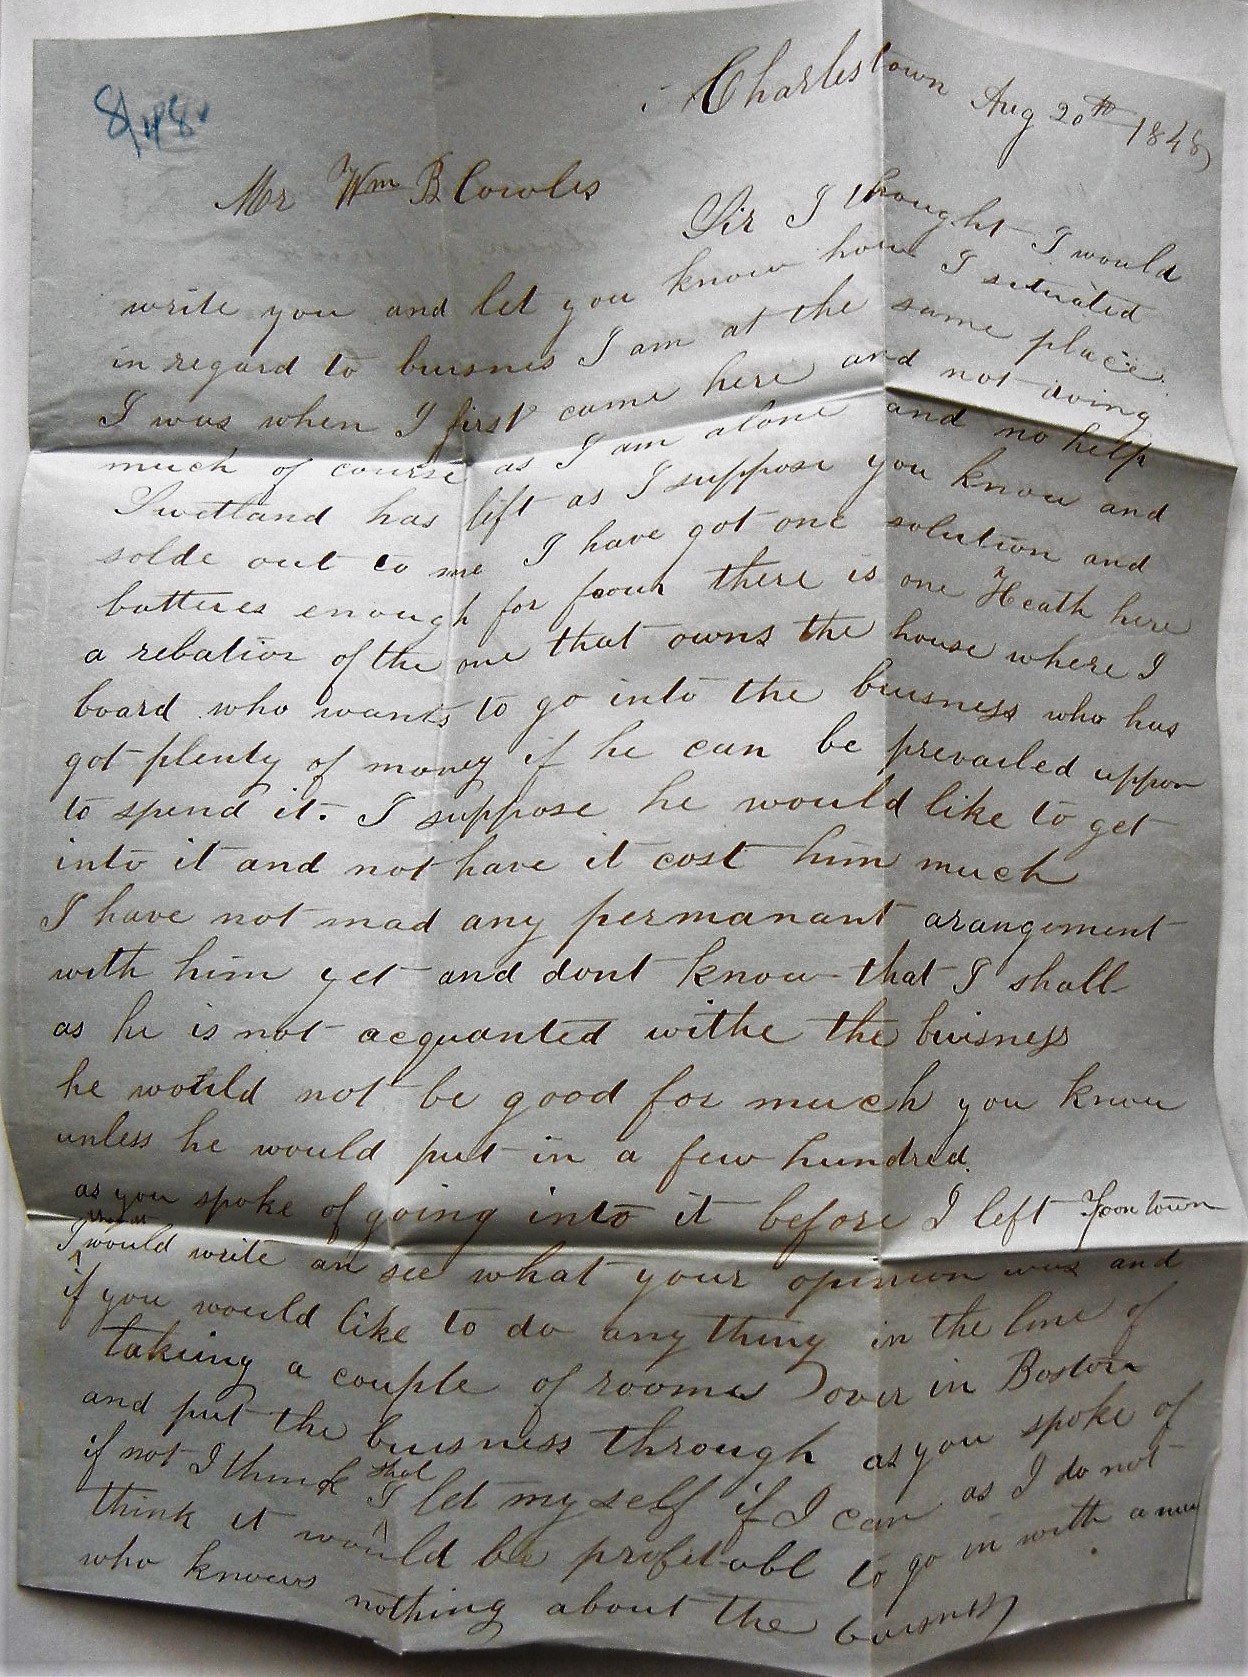 8/48
Charlestown Aug 20th 1848
Mr Wm B Cowles
Sir I thought I would
write you and let you know how I situated
in regard to buisnes I am at the same place
I was when I first came here and not doing
much of course as I am alone and no help
Swetland has left as I suppose you know and
solde out to me I have got one solution and
batteres enough for four there is one Heath here
a relation of the one that owns the house where I
board who wants to go into the buisness who has
got plenty of money if he can be prevailed uppon
to spend it. I suppose he would like to get
into it and not have it cost him much
I have not mad any permanant arangement
with him yet and dont know that I shall
as he is not acquanted withe the buisness
he would not be good for much you know
unless he would put in a few hundred.
as you spoke of going into it before I left town
I would write an see what your opinion was and
if you would like to do any thing in the line of
takeing a couple of rooms over in Boston
and put the buisness through as you spoke of
if not I think I shal let my self if I can as I do not
think it would be profitabl to go in with a man
who knows nothing about the buisness